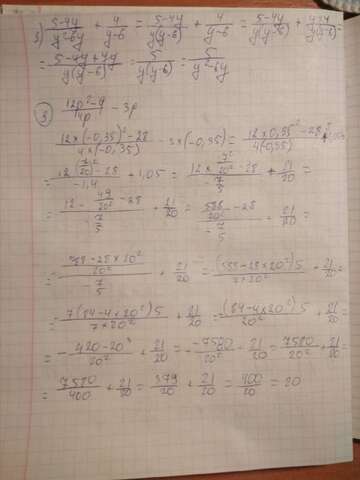 3) (5-4y)/(y²-6y) + 4/(y-6) = (5-4y)/(y(y-6)) + 4/(y-6) = (5-4y)/(y(y-6)) + 4y/(y(y-6)) =
= (5-4y+4y)/(y(y-6)) = 5/(y(y-6)) = 5/(y²-6y)
③ (12p²-q)/(4p) - 3p
(12×(-0,35)²-28)/(4×(-0,35)) - 3×(-0,35) = (12×0,35²-28)/(4(-0,35)) + 1,05
= (12(7/20)²-28)/(-1,4) + 1,05 = (12×7²/20²-28)/(-7/5) + 21/20 =
= (12-49/20²-28)/(-7/5) + 21/20 = (588/20²-28)/(-7/5) + 21/20 =
= ((588-28×20²)/20²)/(7/5) + 21/20 = ((588-28×20²)5)/(7×20²) + 21/20 =
= (7(84-4×20²)5)/(7×20²) + 21/20 = ((84-4×20²)5)/20² + 21/20 =
= -(420-20³)/20² + 21/20 = -(-7580)/20² + 21/20 = 7580/20² + 21/20 =
= 7580/400 + 21/20 = 379/20 + 21/20 = 400/20 = 20